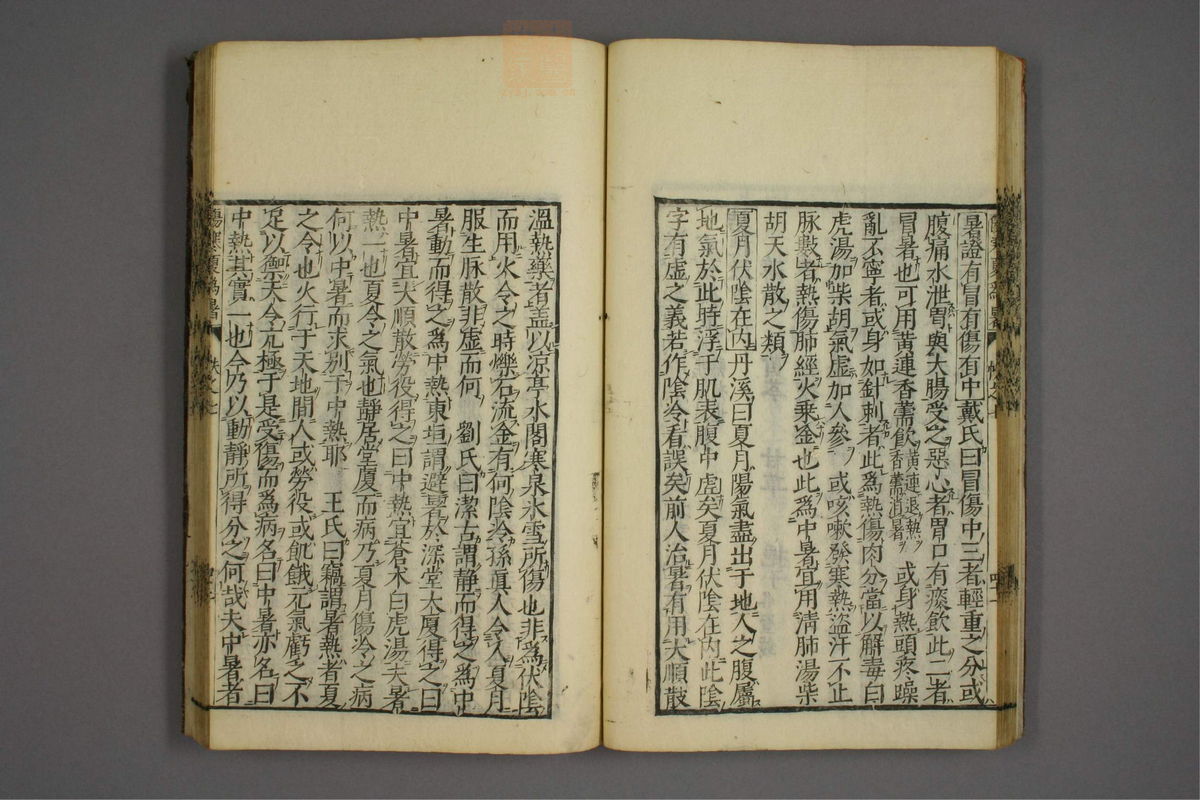 暑證有冒有傷有中戴氏曰冒傷中三者輕重之分或
腹痛水泄胃與大腸受之惡心者胃口有痰飲此二者
冒暑也可用黃連香薷飲黃連退熱香薷消暑或身熱頭疼躁
亂不寧者或身如針刺者此爲熱傷肉分當以解毒白
虎湯加柴胡氣虛加人參或咳嗽發寒熱盜汗不止
脉數者熱傷肺經火乘金也此爲中暑宜用淸肺湯柴
胡天水散之類
夏月伏陰在內丹溪曰夏月陽氣盡出于地人之腹屬
地氣於此時浮于肌表腹中虛矣夏月伏陰在內此陰
字有虛之義若作陰冷看誤矣前人治暑有用大順散
溫熱藥者盖以凉亭水閣寒泉氷雪所傷也非爲伏陰
而用火令之時爍石流金有何陰冷孫眞人令人夏月
服生脉散非虛而何 劉氏曰潔古謂静而得之爲中
暑動而得之爲中熱東垣謂避暑於深堂大厦得之曰
中暑宜大順散勞役得之曰中熱宜蒼朮白虎湯夫暑
熱一也夏令之氣也靜居堂厦而病乃夏月傷冷之病
何以中暑而求別于中熱耶 王氏曰竊謂暑熱者夏
之令也火行于天地間人或勞役或飢餓元氣虧乏不
足以禦天令亢極于是受傷而爲病名曰中暑亦名曰
中熱其實一也今乃以動靜所得分之何哉夫中暑者